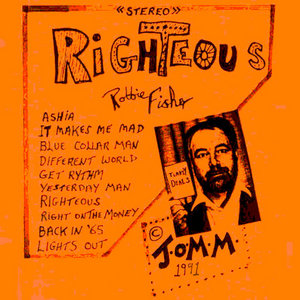 «STEREO»
RIGHTEOUS
Robbie Fisher
ASHIA
IT MAKES ME MAD
BLUE COLLAR MAN
DIFFERENT WORLD
GET RYTHM
YESTERDAY MAN
RIGHTEOUS
RIGHT ON THE MONEY
BACK IN '65
LIGHTS OUT
DEALS
©
J.O.M.M.
1991